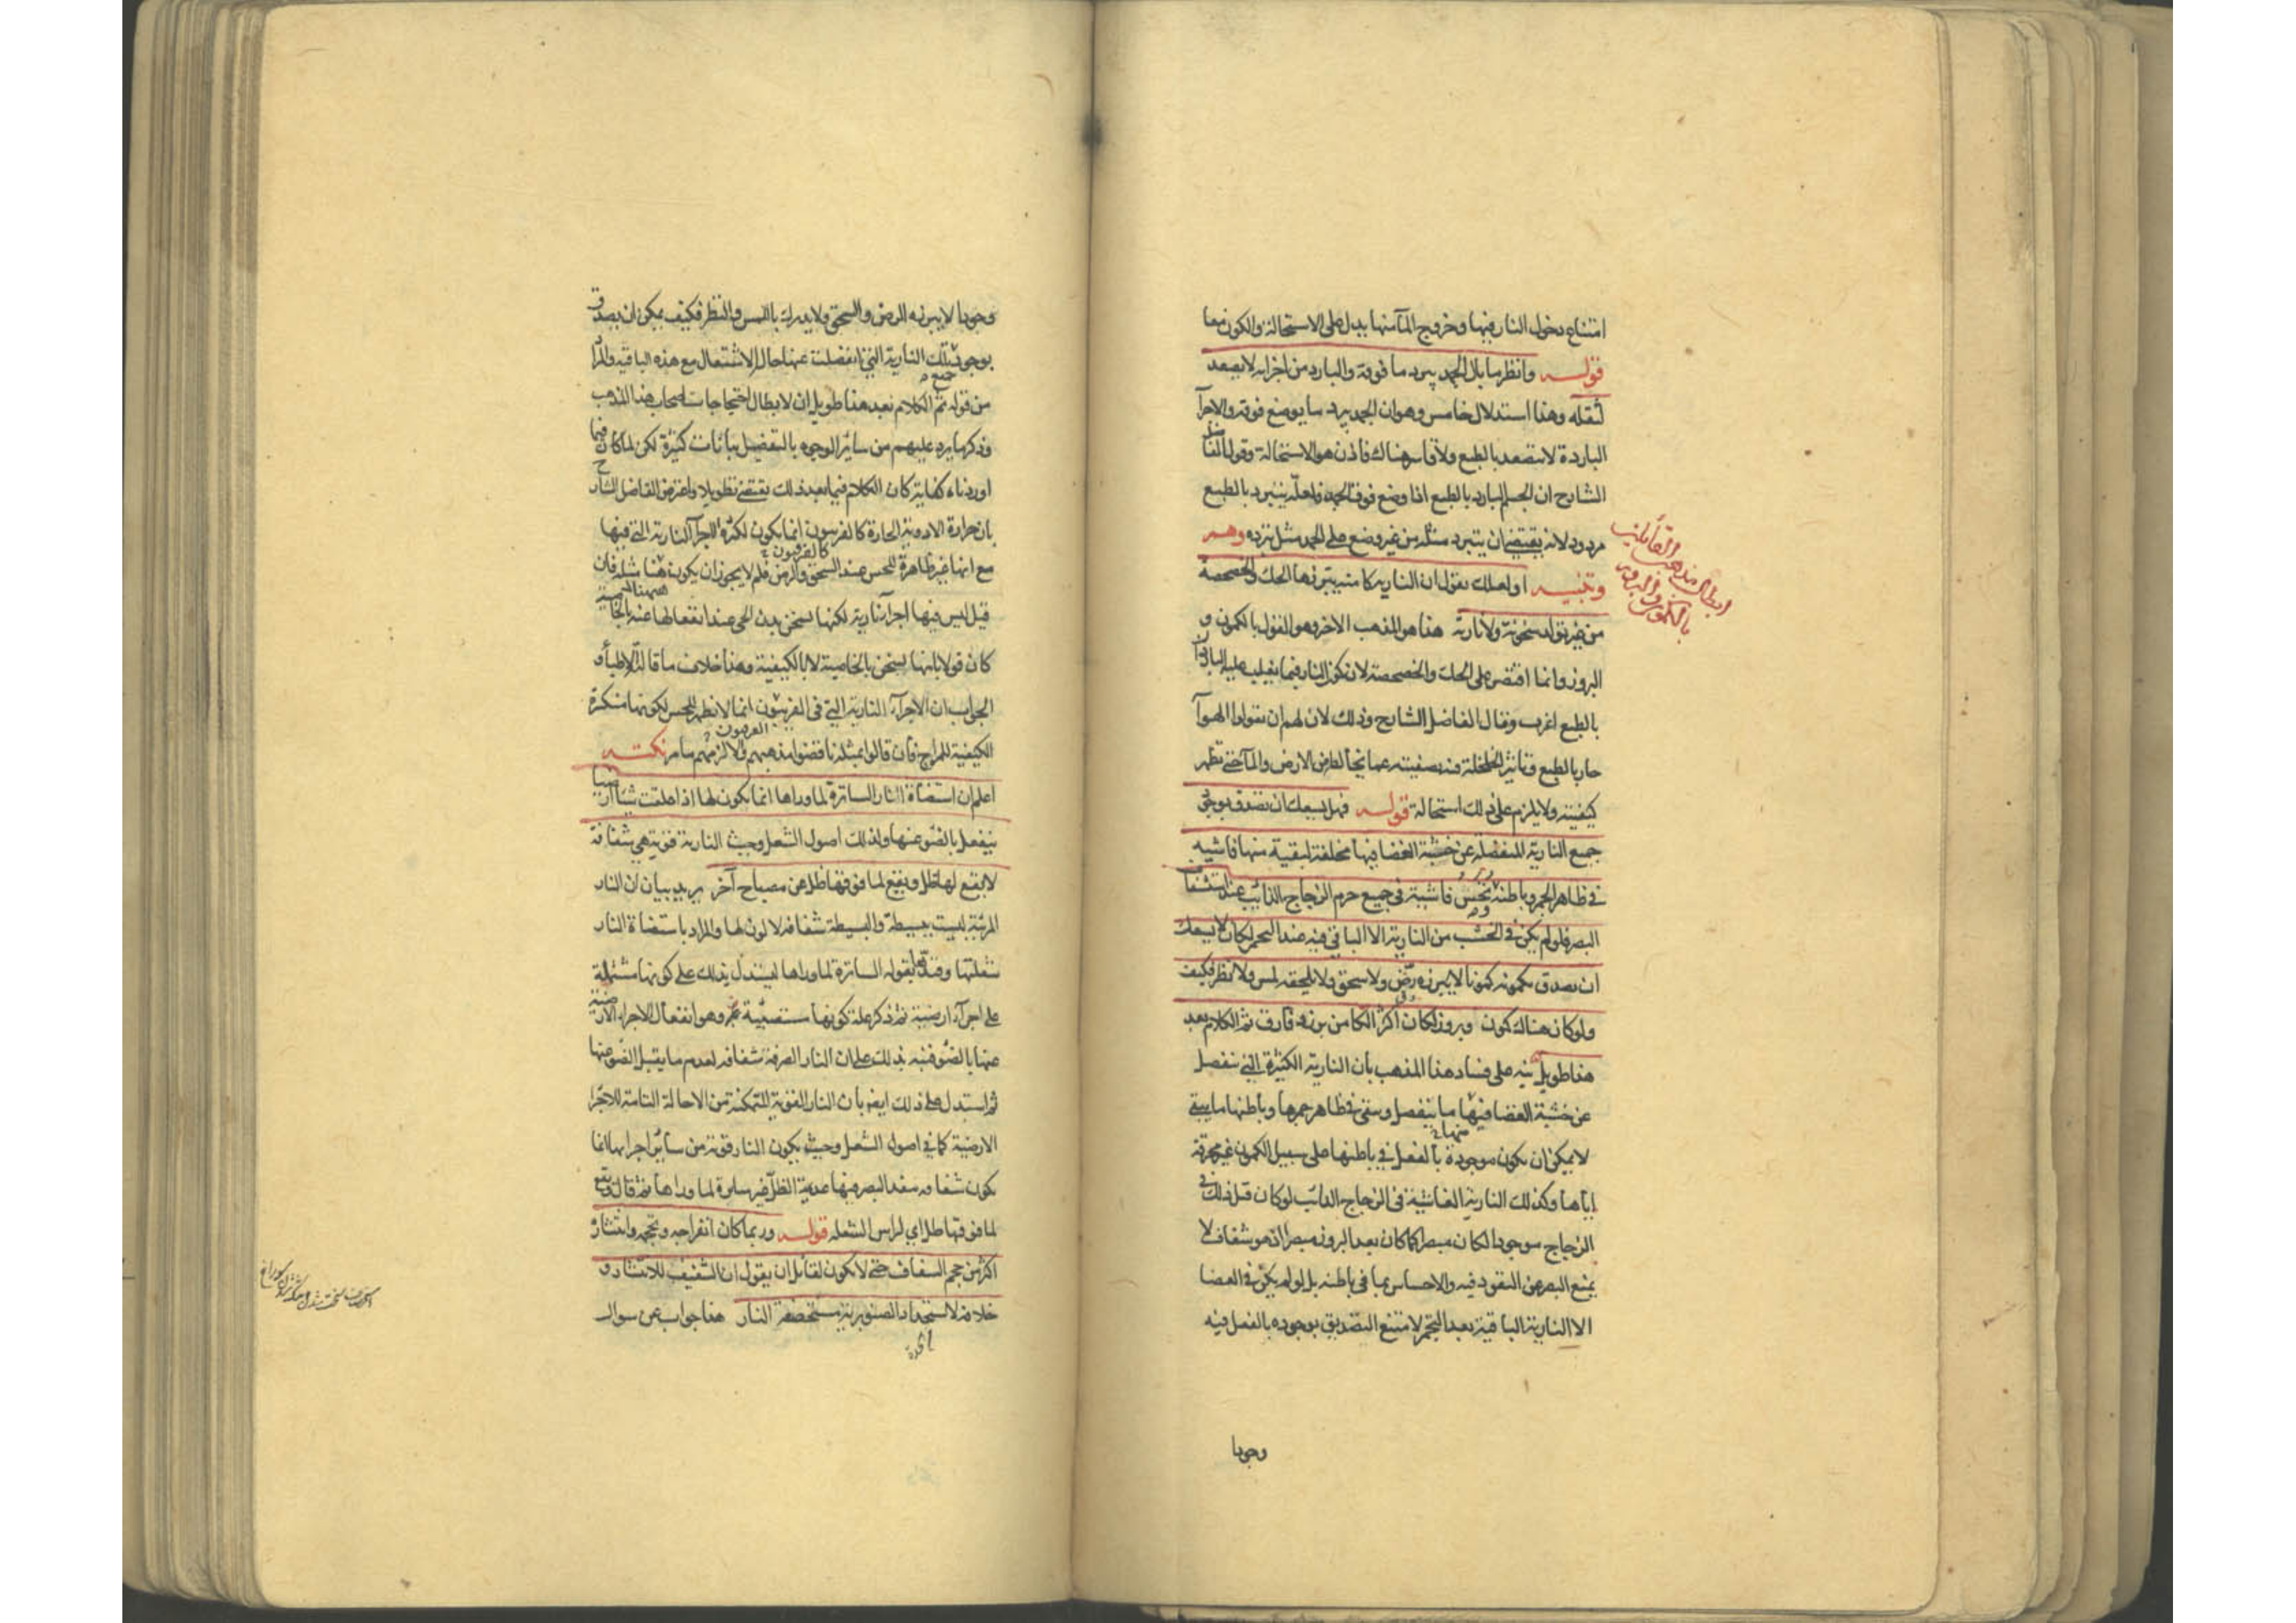 امتناع دخول النار فيها وخروج المآ منها يدل على الاستحالة والكون معا
قولـــه وانظر ما بال الجمد يبرد ما فوقه والبارد من اجزايه لا يصعد
لثقله وهذا استدلال خامس وهو ان الجمد يبرد ما يوضع فوقه والاجزآ
الباردة لا تتصعد بالطبع ولا قاسر هناك فاذن هو الاستحالة وقول الفاضل
الشارح ان الجسم البارد بالطبع اذا وضع فوق الجمد فلعلّه يتبرد بالطبع
مردود لانه يقتضي ان يتبرد مثله من غير وضع على الجمد مثل تبرده وهـــم
وتنبيـــه اولعلك تقول ان النارية كامنة يبرزها الحك والخضخضة
من غير تولد سخونة ولا نارية هذا هو المذهب الاخر وهو القول بالكمون و
البروز وانما اقتصر على الحك والخضخضة لان كون النار فيما يغلب عليه البارد
بالطبع اغرب وقال الفاضل الشارح وذلك لان لهم ان يقولوا الهوآ
حار بالطبع وتاثير الخلخلة فيه تصفيته عما يخالطه من الارض والمآ حتى تظهر
كيفيته ولا يلزم على ذلك استحالة قولـــه فهل يسعك ان تصدق بوجود
جميع النارية المنفصلة عن خشبة الغضا فيها مخلفة لبقية منها فاشية
في ظاهر الجمر وباطنه وتحس فاشية في جميع جرم الزجاج الذائب عند استشفاف
البصر فلو لم يكن في الخشب من النارية الا الباقي فيه عند التجمر لكان لا يسعك
ان تصدق بكمونه كمونا لا يبرزه رضّ ولا سحق ولا يلحقه لمس ولا نظر فكيف
ولو كان هناك كمون وبروز لكان اكثر الكامن برز وفارق ثم الكلام بعد
هذا طويل نبه على فساد هذا المذهب بان النارية الكثيرة التي تنفصل
عن خشبة الغضا فيها ما ينفصل ويبقى في ظاهر جمرها وباطنها ما يبقى
منها
لا يمكن ان يكون موجودة بالفعل في باطنها على سبيل الكمون غير محرقة
اياها وكذلك النارية الفاشية في الزجاج الذائب لو كان قبل ذلك في
الزجاج موجودا لكان مبصرا كما كان بعد البروز مبصرا اذ هو شفاف لا
يمنع البصر عن النفوذ فيه والاحساس بما في باطنه بل لو لم يكن في الغضا
الا النارية الباقية بعد التجمر لامتنع التصديق بوجوده بالفعل فيه
وجودا
ابطال مذهب القائلين
بالكمون والبروز
وجودا لا يبرزه الرض والسحق ولا يدرك باللمس والنظر فكيف يمكن ان يصدق
بوجود تلك النارية التي انفصلت عنها حال الاشتعال مع هذه الباقية والمراد
من قوله ثم الكلام بعد هذا طويل ان لابطال احتجاجات اصحاب هذا المذهب
وذكر ما يرد عليهم من سائر الوجوه بالتفصيل بيانات كثيرة لكن لما كان فيما
اوردناه كفاية كان الكلام فيما بعد ذلك يقتضي تطويلا واعترض الفاضل الشارح
بان حرارة الادوية الحارة كالفربيون انما يكون لكثرة الاجزآ النارية التي فيها
مع انها غير ظاهرة للحس عند السحق والرض فلم لا يجوز ان يكون ههنا مثله فان
قيل ليس فيها اجزآ نارية لكنها تسخن بدن الحي عند انفعالها عنه بالخاصية
كان قولا بانها تسخن بالخاصية لا بالكيفية وهذا خلاف ما قاله الاطبآ و
الجواب ان الاجزآء النارية التي في الفربيون انما لا تظهر للحس لكونها منكسرة
الكيفية للمزاج فان قالوا بمثله ناقضوا مذهبهم والا لزمهم ما مر نكتـــه
اعلم ان استضاءة النار الساترة لما وراها انما يكون لها اذا علقت شيئا ارضيا
ينفعل بالضوء عنها ولذلك اصول الشعل وحيث النارية قوية هي شفافة
لا يقع لها ظل ويقع لما فوقها ظل عن مصباح آخر يريد بيان ان النار
المرئية ليست ببسيطة والبسيطة شفافة لا لون لها والمراد باستضاءة النار
شعلتها وقيدها بقوله الساترة لما وراها ليستدل بذلك على كونها مشتملة
على اجزآء ارضية ثم ذكر علة كونها مستضيئة وهو انفعال الاجزاء الارضية
عنها بالضوء فنبه بذلك على ان النار الصرفة شفافة لعدم ما يقبل الضوء عنها
ثم استدل على ذلك ايضا بان النار القوية المتمكنة من الاحالة التامة للاجزا
الارضية كما في اصول الشعل وحيث يكون النار قوية من سائر اجزايها انما
يكون شفافة ينفذ البصر فيها عديمة الظل غير ساترة لما وراها ثم قال ويقع
لما فوقها ظل اي لراس الشعلة قولـــه وربما كان انفراجه وتحجمه وانتشاره
اكثر من حجم الشفاف حتى لا يكون لقائل ان يقول ان الشفيف للانتشار و
خلافه لاستحداد الصنوبرية مستحصفة النار هذا جواب عن سوال